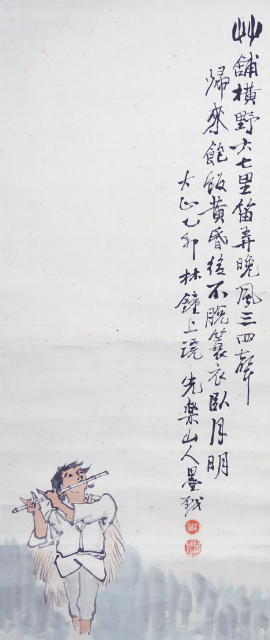 艸舖横野六七里笛弄晩風三四聲
歸來飽飯黄昏後不脱簑衣臥月明
大正乙卯林鐘上澣 先樂山人墨戯